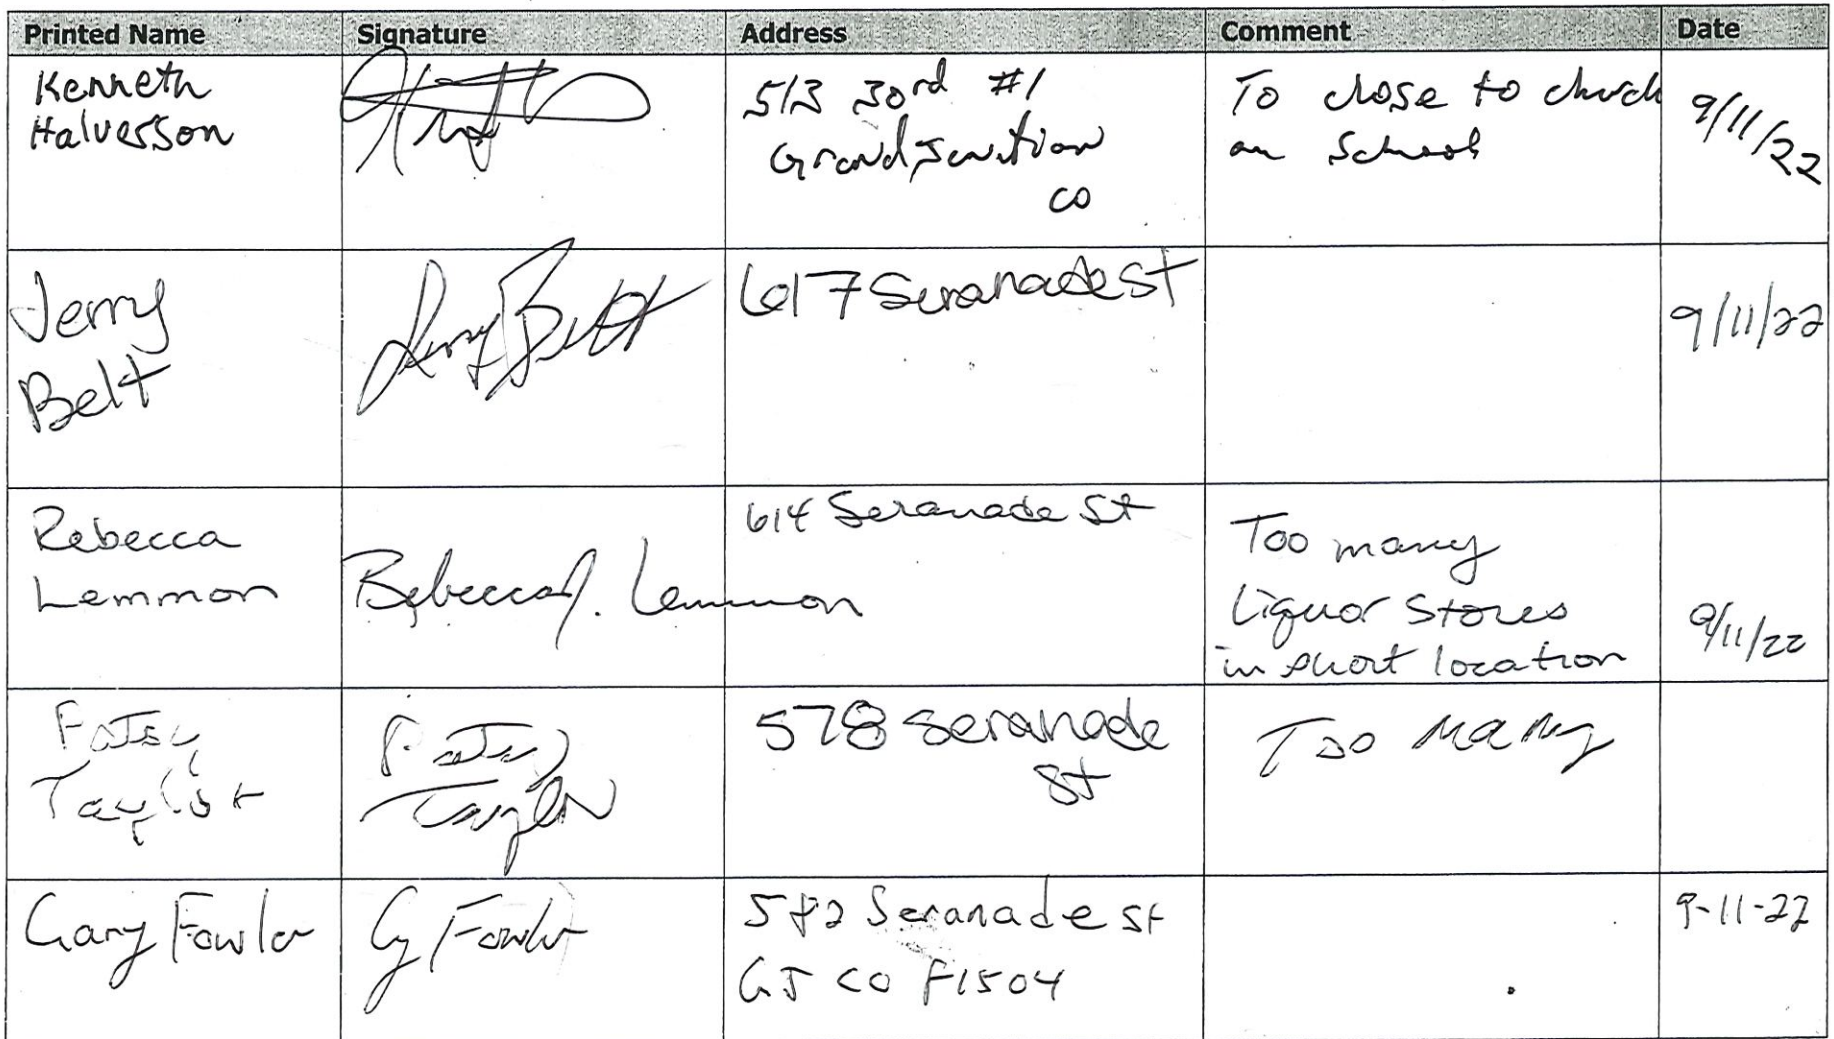 Printed Name Signature Address Comment Date
Kenneth
Halverson
513 30rd #1
Grand Junction
CO
To close to church
an School
9/11/22
Jerry
Belt
Jerry Belt
617 Seranade St
9/11/22
Rebecca
Lemmon
Rebecca J. Lemmon
614 Seranade St
Too many
Liquor Stores
in short location
9/11/22
Patsy
Taylor
Patsy
Taylor
578 Seranade
St
Too Many
Gary Fowler
G Fowler
582 Seranade St
GJ CO 81504
9-11-22